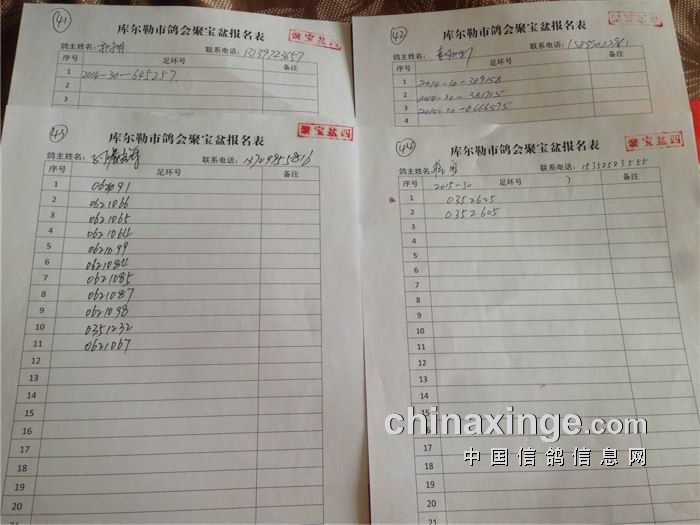 41
库尔勒市鸽会聚宝盆报名表
聚宝盆四
鸽主姓名: 联系电话: 13139722657
序号 足环号 备注
1 2014-30-645257
2
3
4
42
库尔勒市鸽会聚宝盆报名表
鸽主姓名: 联系电话:
序号 足环号 备注
1 2014-30-389158
2 2014-30-381715
3 2015-30-0666575
4
43
库尔勒市鸽会聚宝盆报名表
聚宝盆四
鸽主姓名: 联系电话: 13709855816
序号 足环号 备注
1
2 0621066
3 0621065
4 0621064
5 0621099
6 0621084
7 0621085
8 0621087
9 0621098
10 0351232
11 0621067
12
13
14
15
16
17
18
19
20
44
库尔勒市鸽会聚宝盆报名表
聚宝盆四
鸽主姓名: 联系电话: 15352523555
序号 2015-30 足环号 备注
1 0352625
2 0352605
3
4
5
6
7
8
9
10
11
12
13
14
15
16
17
18
19
20
21
chinaxinge.com
中国信鸽信息网